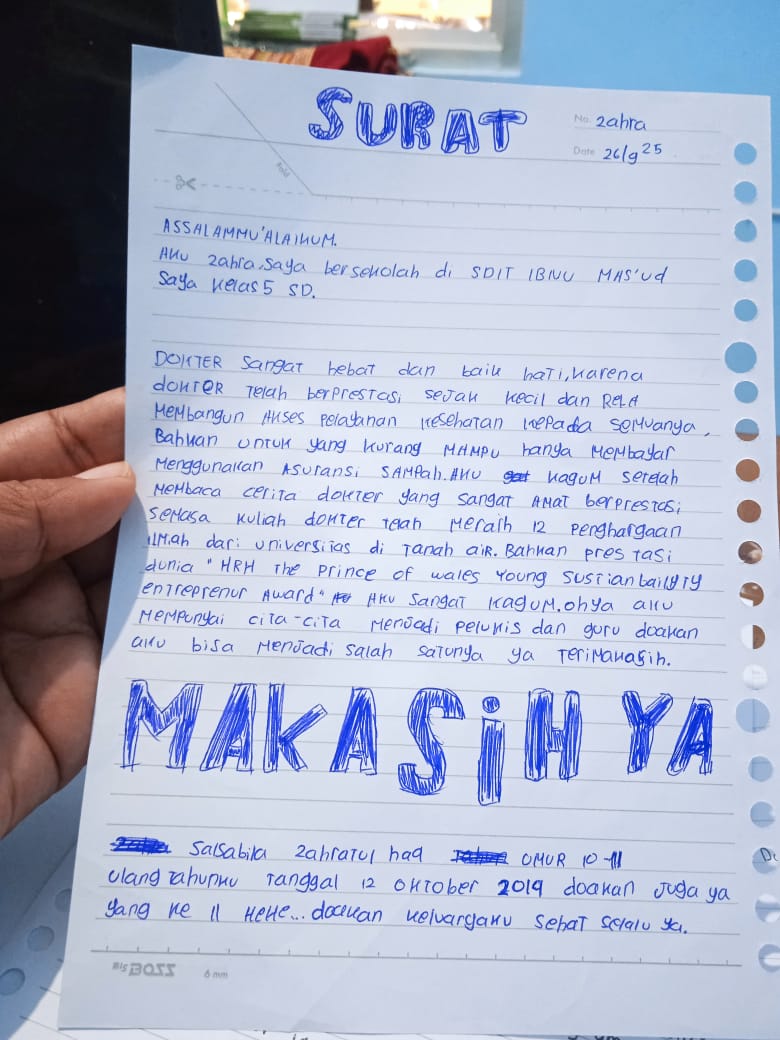 SURAT
No. Zahra
Date 26/9 25
fold
ASSALAMMU'ALAIKUM.
AKU Zahra.saya bersekolah di SDIT IBNU MAS'Ud
Saya Kelas 5 SD.
DOKTER Sangat hebat dan baik hati, karena
dokter Telah berprestasi sejak kecil dan Rela
Membangun Akses pelayanan kesehatan kepada semuanya,
Bahkan untuk yang kurang MAMPU hanya Membayar
Menggunakan Asuransi SAMpah. Aku kagum setelah
Membaca cerita dokter yang sangat Amat berprestasi
semasa kuliah dokter telah Meraih 12 penghargaan
ilmiah dari universitas di Tanah air. Bahkan prestasi
dunia "HRH The prince of wales Young Sustianbailyty
entreprenur Award" Aku Sangat kagum. ohya aku
Mempunyai cita-cita Menjadi pelukis dan guru doakan
aku bisa Menjadi salah satunya ya Terimakasih.
MAKASiH YA
Salsabila Zahratul haq UMUR 10-11
Ulang tahunku tanggal 12 oktober 2014 doakan Juga ya
yang ke 11 HeHe... doakan keluargaku sehat selalu ya.
Big BOSS 6 mm